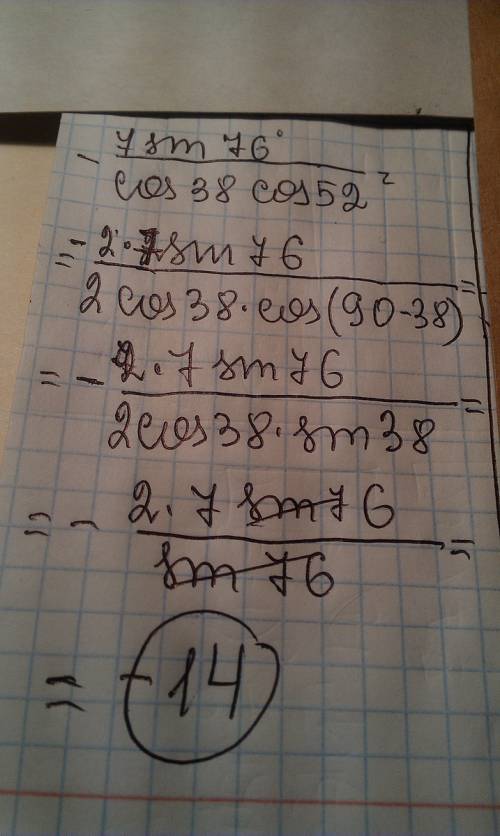 - 7 sin 76° / cos 38 cos 52 =
= - 2·7 sin 76 / 2 cos 38·cos(90-38) =
= - 2·7 sin 76 / 2 cos 38·sin 38 =
= - 2·7 sin 76 / sin 76 =
= -14